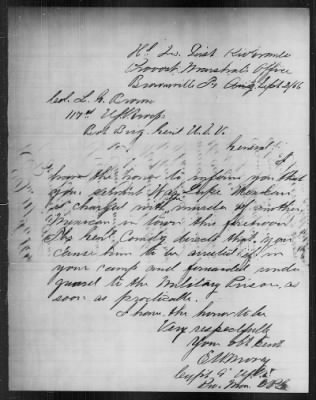 Hd Qrs Dist Rio Grande
Provost Marshals Office
Brownsville Tx Sept 2/66
Col. L. G. Brown
117th U.S.C. Troops
Bvt Brig. Genl U.S.V.
General
I
have the honor to inform you that
your servant Luke
is charged with the murder of another
Mexican in town this forenoon
The Genl Comdg directs that you
cause him to be arrested if in
your camp and forwarded under
guard to the Military Prison as
soon as practicable.
I have the honor to be
Very respectfully
Your obt Servt
Capt
Pro. Mar.